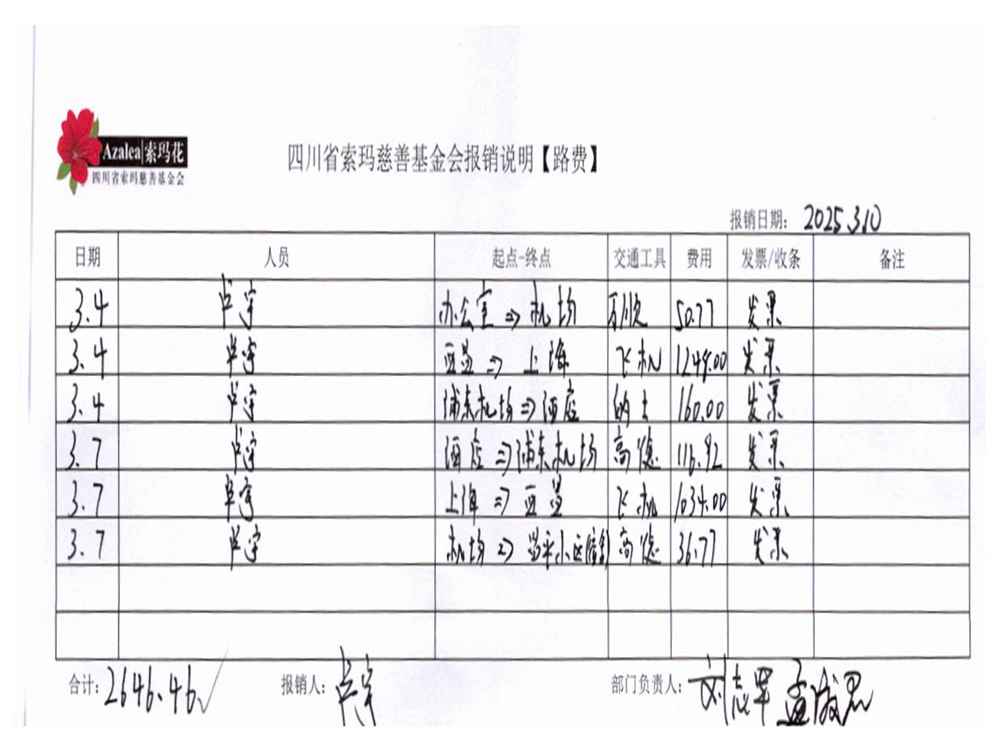 Azalea|索玛花
四川省索玛慈善基金会
四川省索玛慈善基金会报销说明【路费】
报销日期: 2025.3.10
日期 人员 起点-终点 交通工具 费用 发票/收条 备注
3.4 办公室⇒机场 万顺 50.77 发票
3.4 西昌⇒上海 飞机 1248.00 发票
3.4 浦东机场⇒酒店 的士 160.00 发票
3.7 酒店⇒浦东机场 高德 116.92 发票
3.7 上海⇒西昌 飞机 1034.00 发票
3.7 机场⇒ 小区 高德 36.77 发票
合计: 2646.46 报销人: 部门负责人: